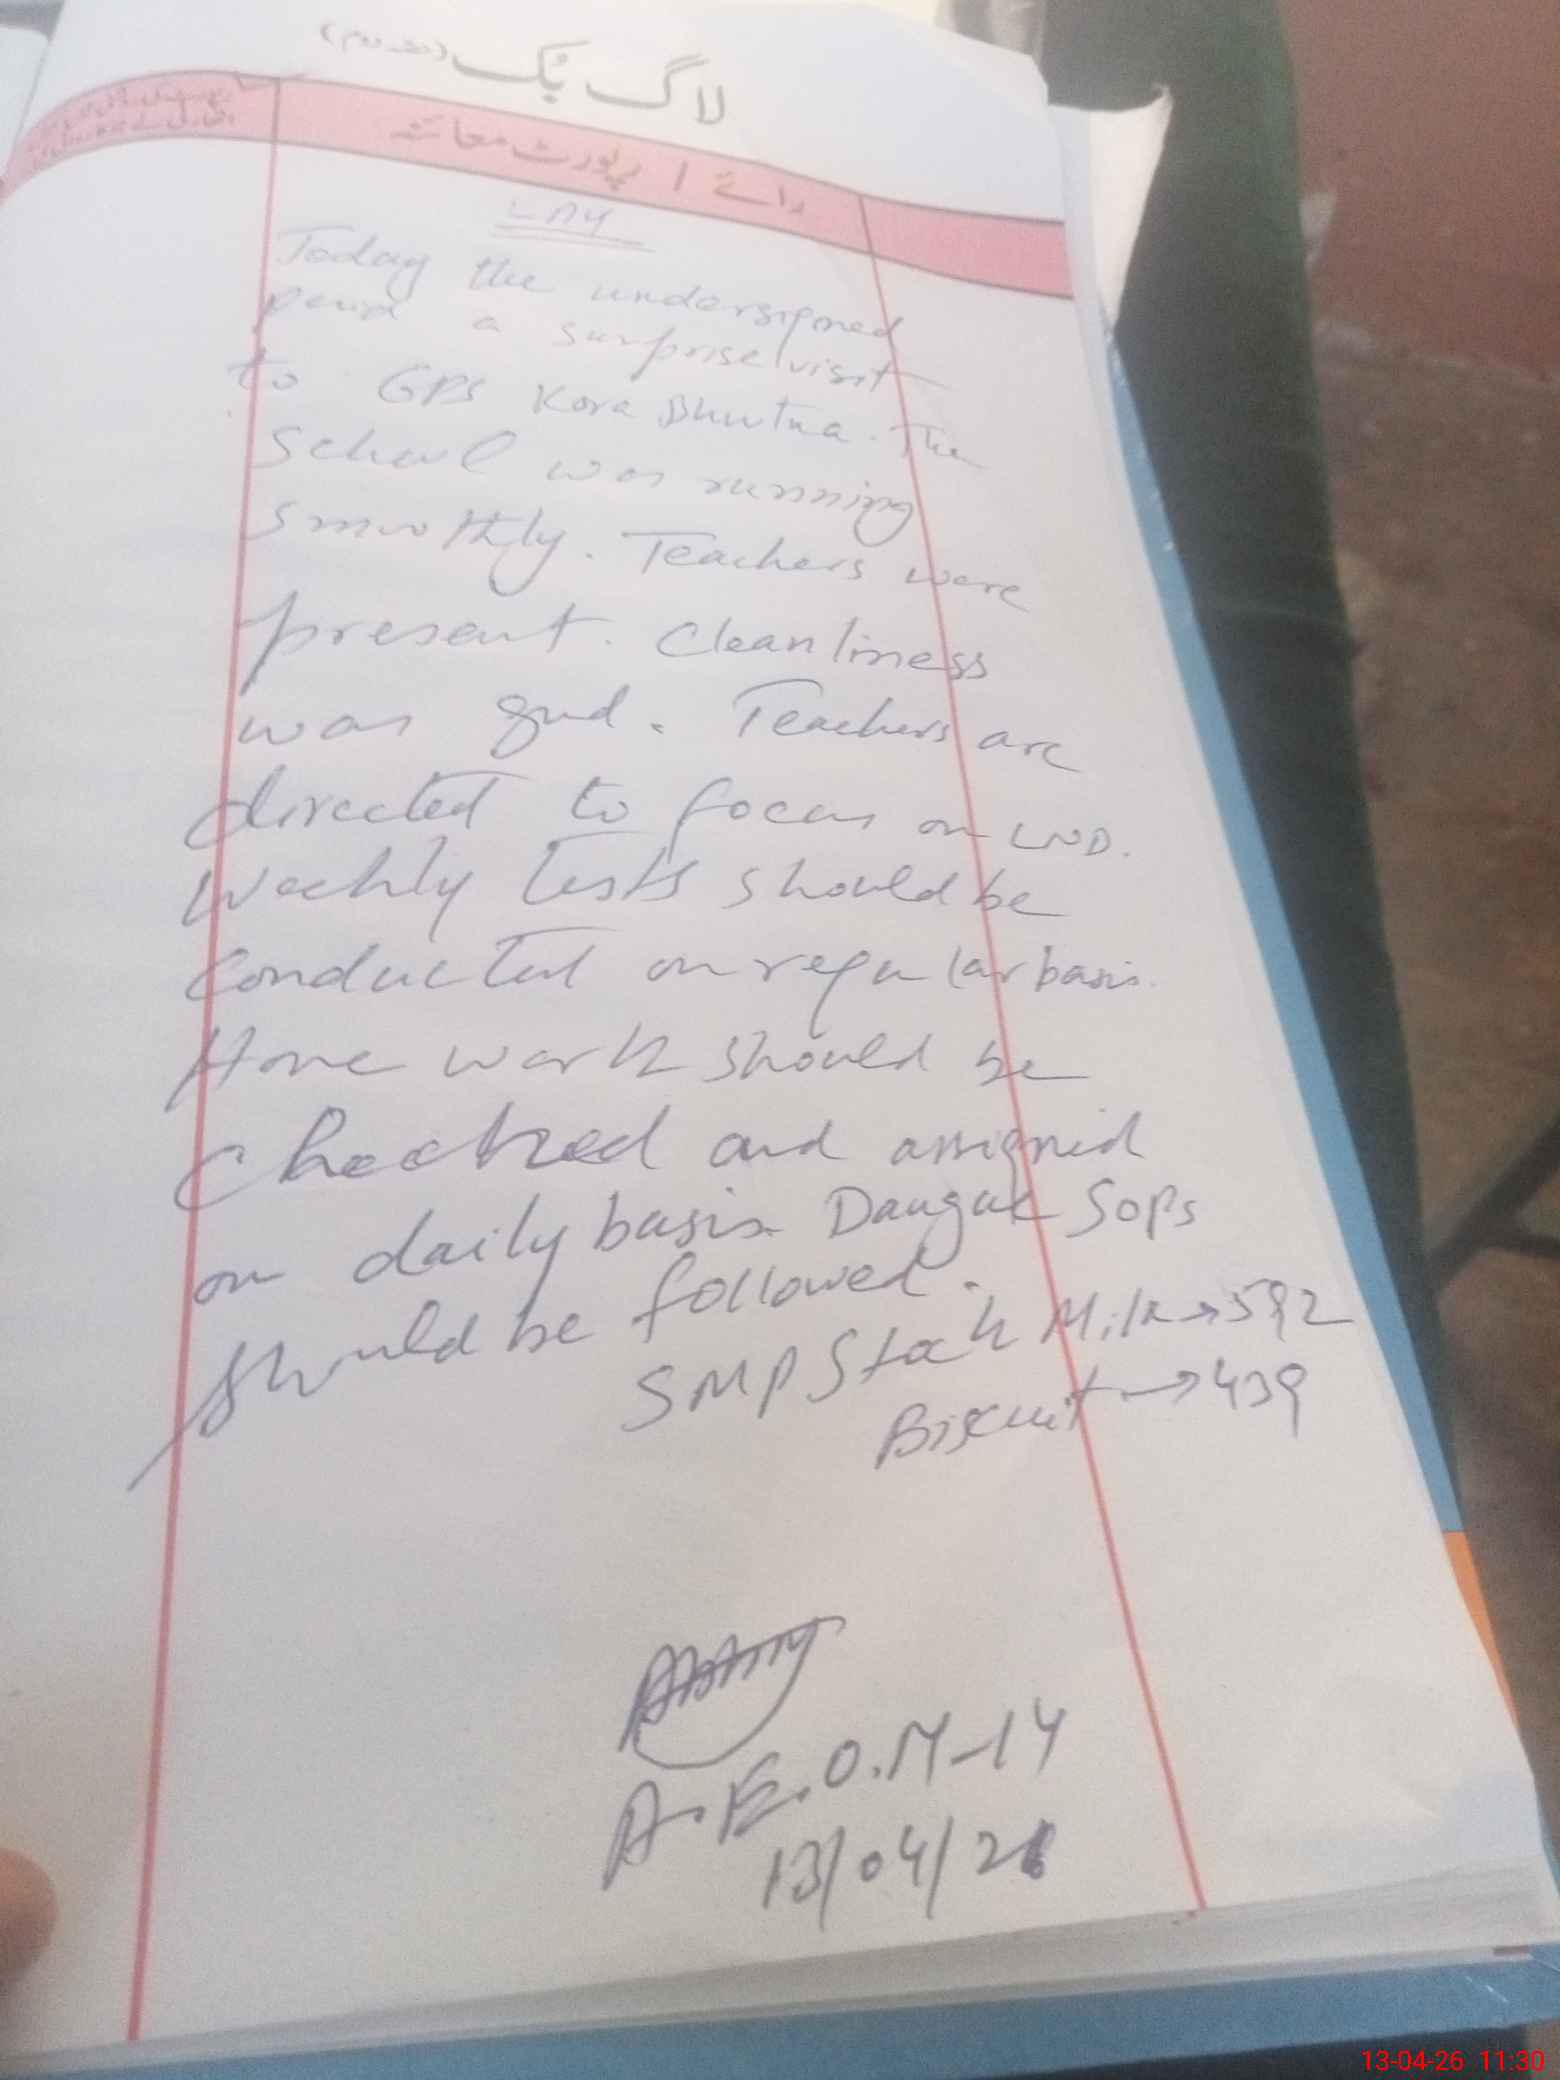 لاگ بک (حصہ دوم)
رائے / رپورٹ معائنہ
LAY
Today the undersigned
paid a surprise visit
to GPS Kora Bhutna. The
School was running
Smoothly. Teachers were
present. Cleanliness
was good. Teachers are
directed to focus on LND.
Weekly tests should be
conducted on regular basis.
Home work should be
checked and assigned
on daily basis. Dengue SOPs
should be followed.
SMP Stock Milk → 592
Biscuit → 439
A.E.O.M-14
13/04/26
13-04-26 11:30